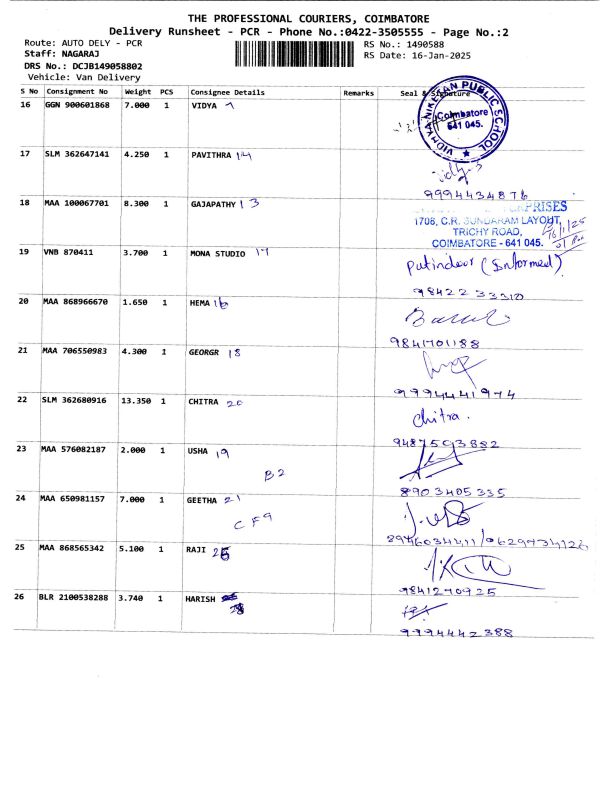 THE PROFESSIONAL COURIERS, COIMBATORE
Delivery Runsheet - PCR - Phone No.:0422-3505555 - Page No.:2
Route: AUTO DELY - PCR
RS No.: 1490588
Staff: NAGARAJ
RS Date: 16-Jan-2025
DRS No.: DCJB149058802
Vehicle: Van Delivery
S No Consignment No Weight PCS Consignee Details Remarks Seal & Signature
16 GGN 900601868 7.000 1 VIDYA
VIDHYA NIKETAN PUBLIC SCHOOL
Coimbatore
641 045.
17 SLM 362647141 4.250 1 PAVITHRA 14
9994434876
18 MAA 100067701 8.300 1 GAJAPATHY 13
PRISES
1708, C.R. SUNDARAM LAYOUT,
TRICHY ROAD,
COIMBATORE - 641 045.
16/1/25
19 VNB 870411 3.700 1 MONA STUDIO 17
(Informed)
98422 33310
20 MAA 868966670 1.650 1 HEMA 16
9841701188
21 MAA 706550983 4.300 1 GEORGR 18
9994441974
22 SLM 362680916 13.350 1 CHITRA 20
Chitra.
9487593882
23 MAA 576082187 2.000 1 USHA 19
B2
8903405335
24 MAA 650981157 7.000 1 GEETHA 21
CF9
25 MAA 868565342 5.100 1 RAJI
9841270925
26 BLR 2100538288 3.740 1 HARISH
9994442388